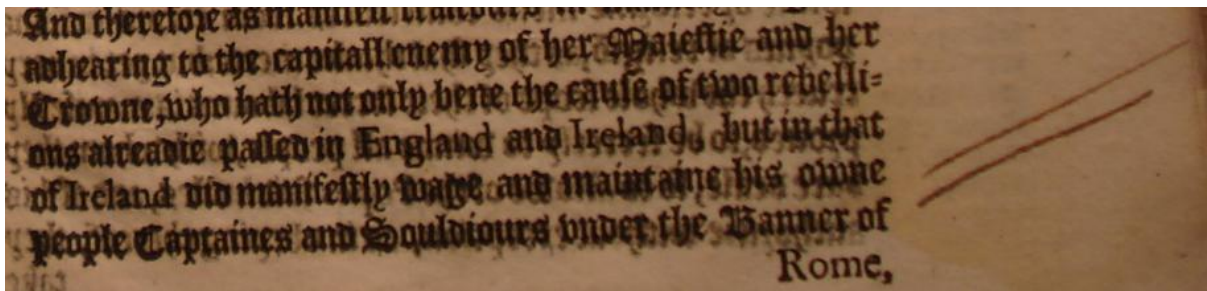 And therefore as manifest traitours in
adhearing to the capitall enemy of her Maiestie and her
Crowne, who hath not only bene the cause of two rebelli-
ons alreadie passed in England and Ireland, but in that
of Ireland did manifestly wage and maintaine his owne
people Captaines and Souldiours vnder the Banner of
Rome,